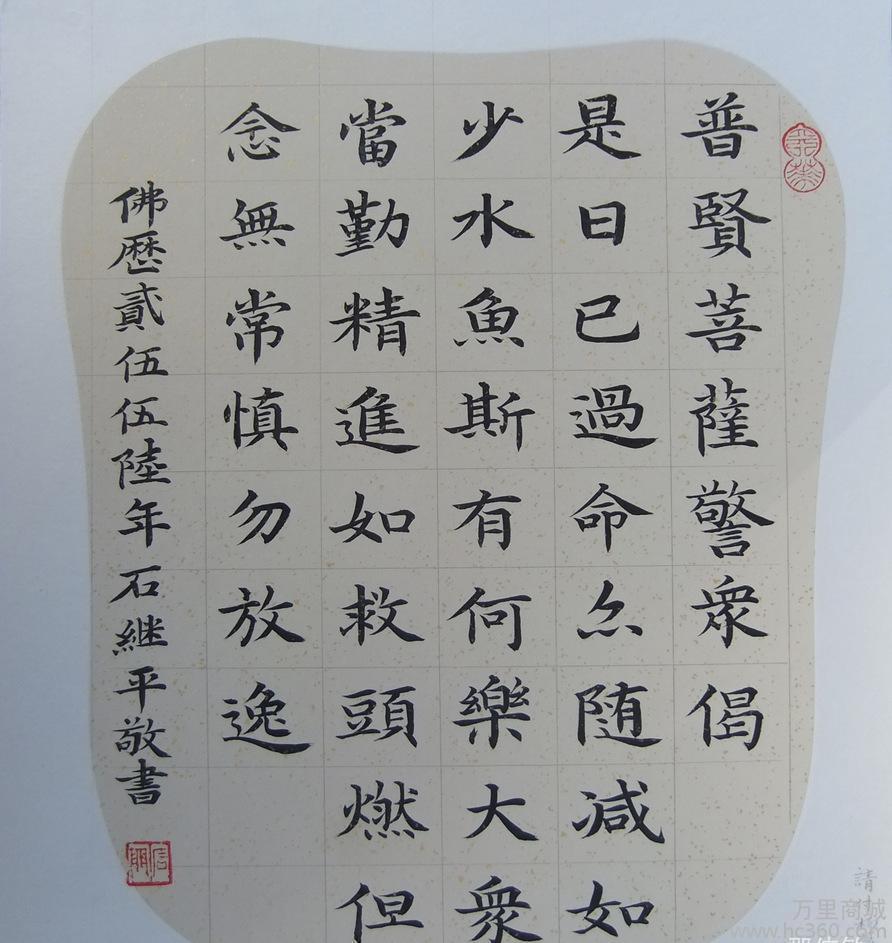 普賢菩薩警衆偈
是日已過命亦随减如
少水魚斯有何樂大衆
當勤精進如救頭燃但
念無常慎勿放逸
佛歷貳伍伍陸年石継平敬書
請
万里商城
www.hc360.com